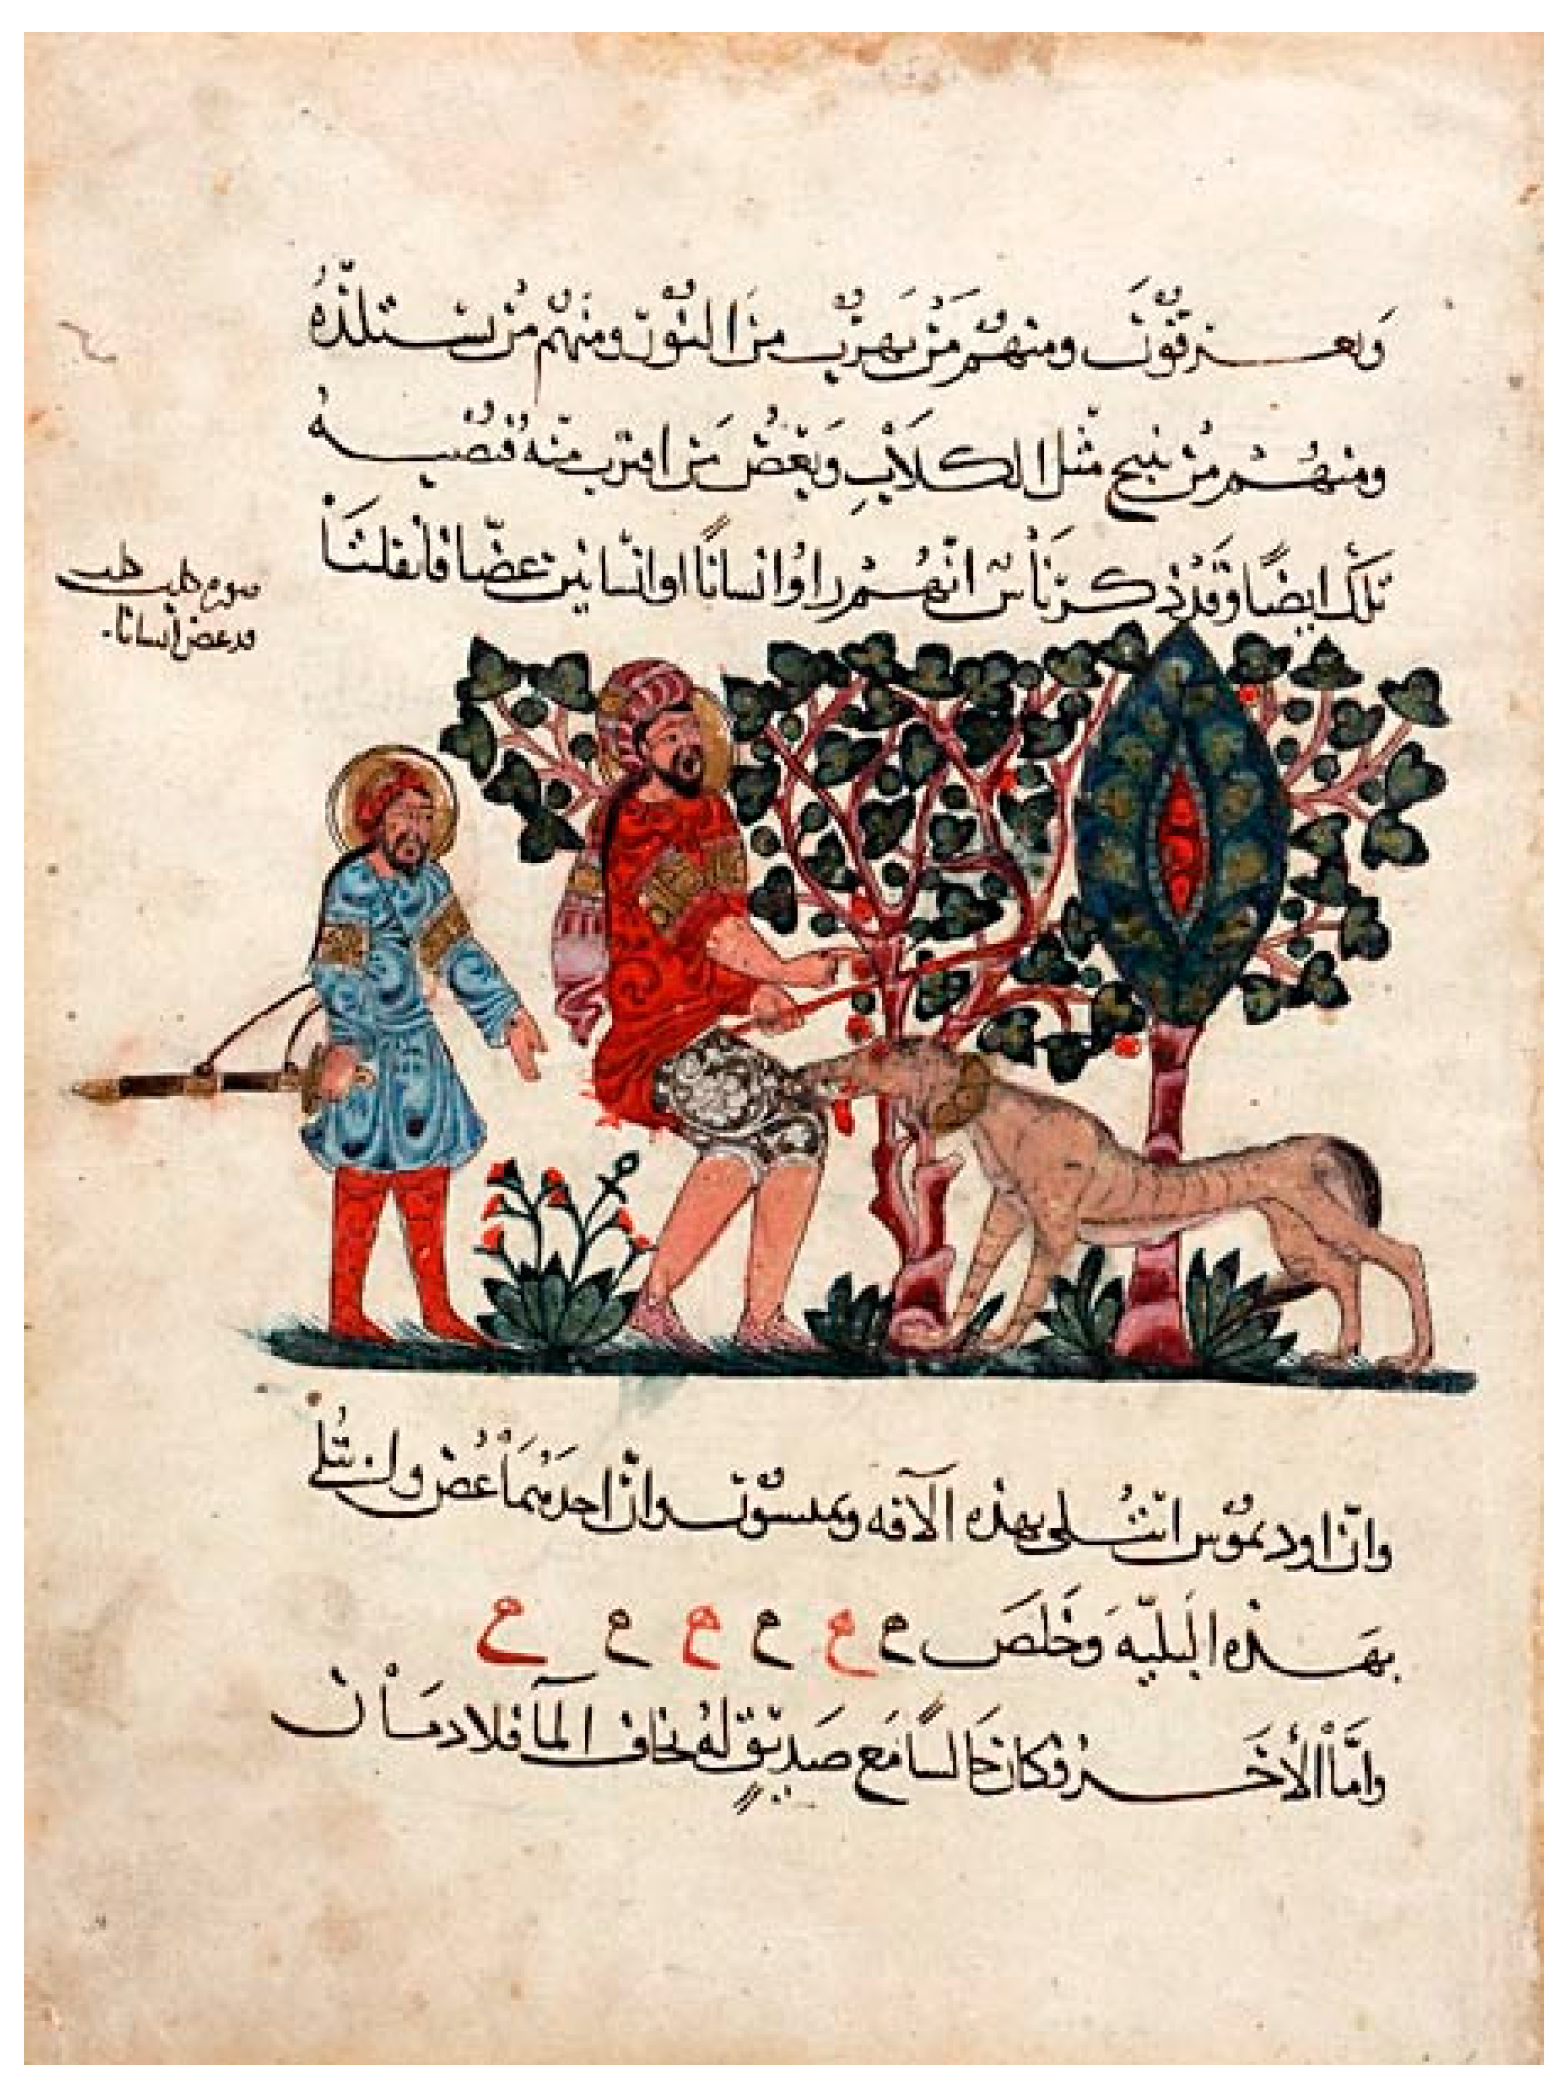 وَيعـرقُونَ ومنهُم مَنْ يَهربُ مِنَ النُور ومنهُم مَنْ يستلذّهُ
ومنهُم مَنْ ينبح مثل الكلابِ وَيَعَضُّ مَن اقترب مِنه فتُصيبهُ
تلك ايضًا وَقَد ذكر نَاسٌ انّهُم رَاوُا انسانًا او انسَانين عضّا فانفلتَا
صورة كلب كلب
قد عض انسانا
وانّ اوديموُس ابتُلى بهذه الآفه وثمسون وانّ احدهُمَا عُض وابتُلي
بهَذه البَليّه وَخَلصَ ه ه ه ه ه ه
وامَّا الأخَر فكانَ جَالسًا مَع صَديقٍ لهُ يخاف المآ فلا دمَان